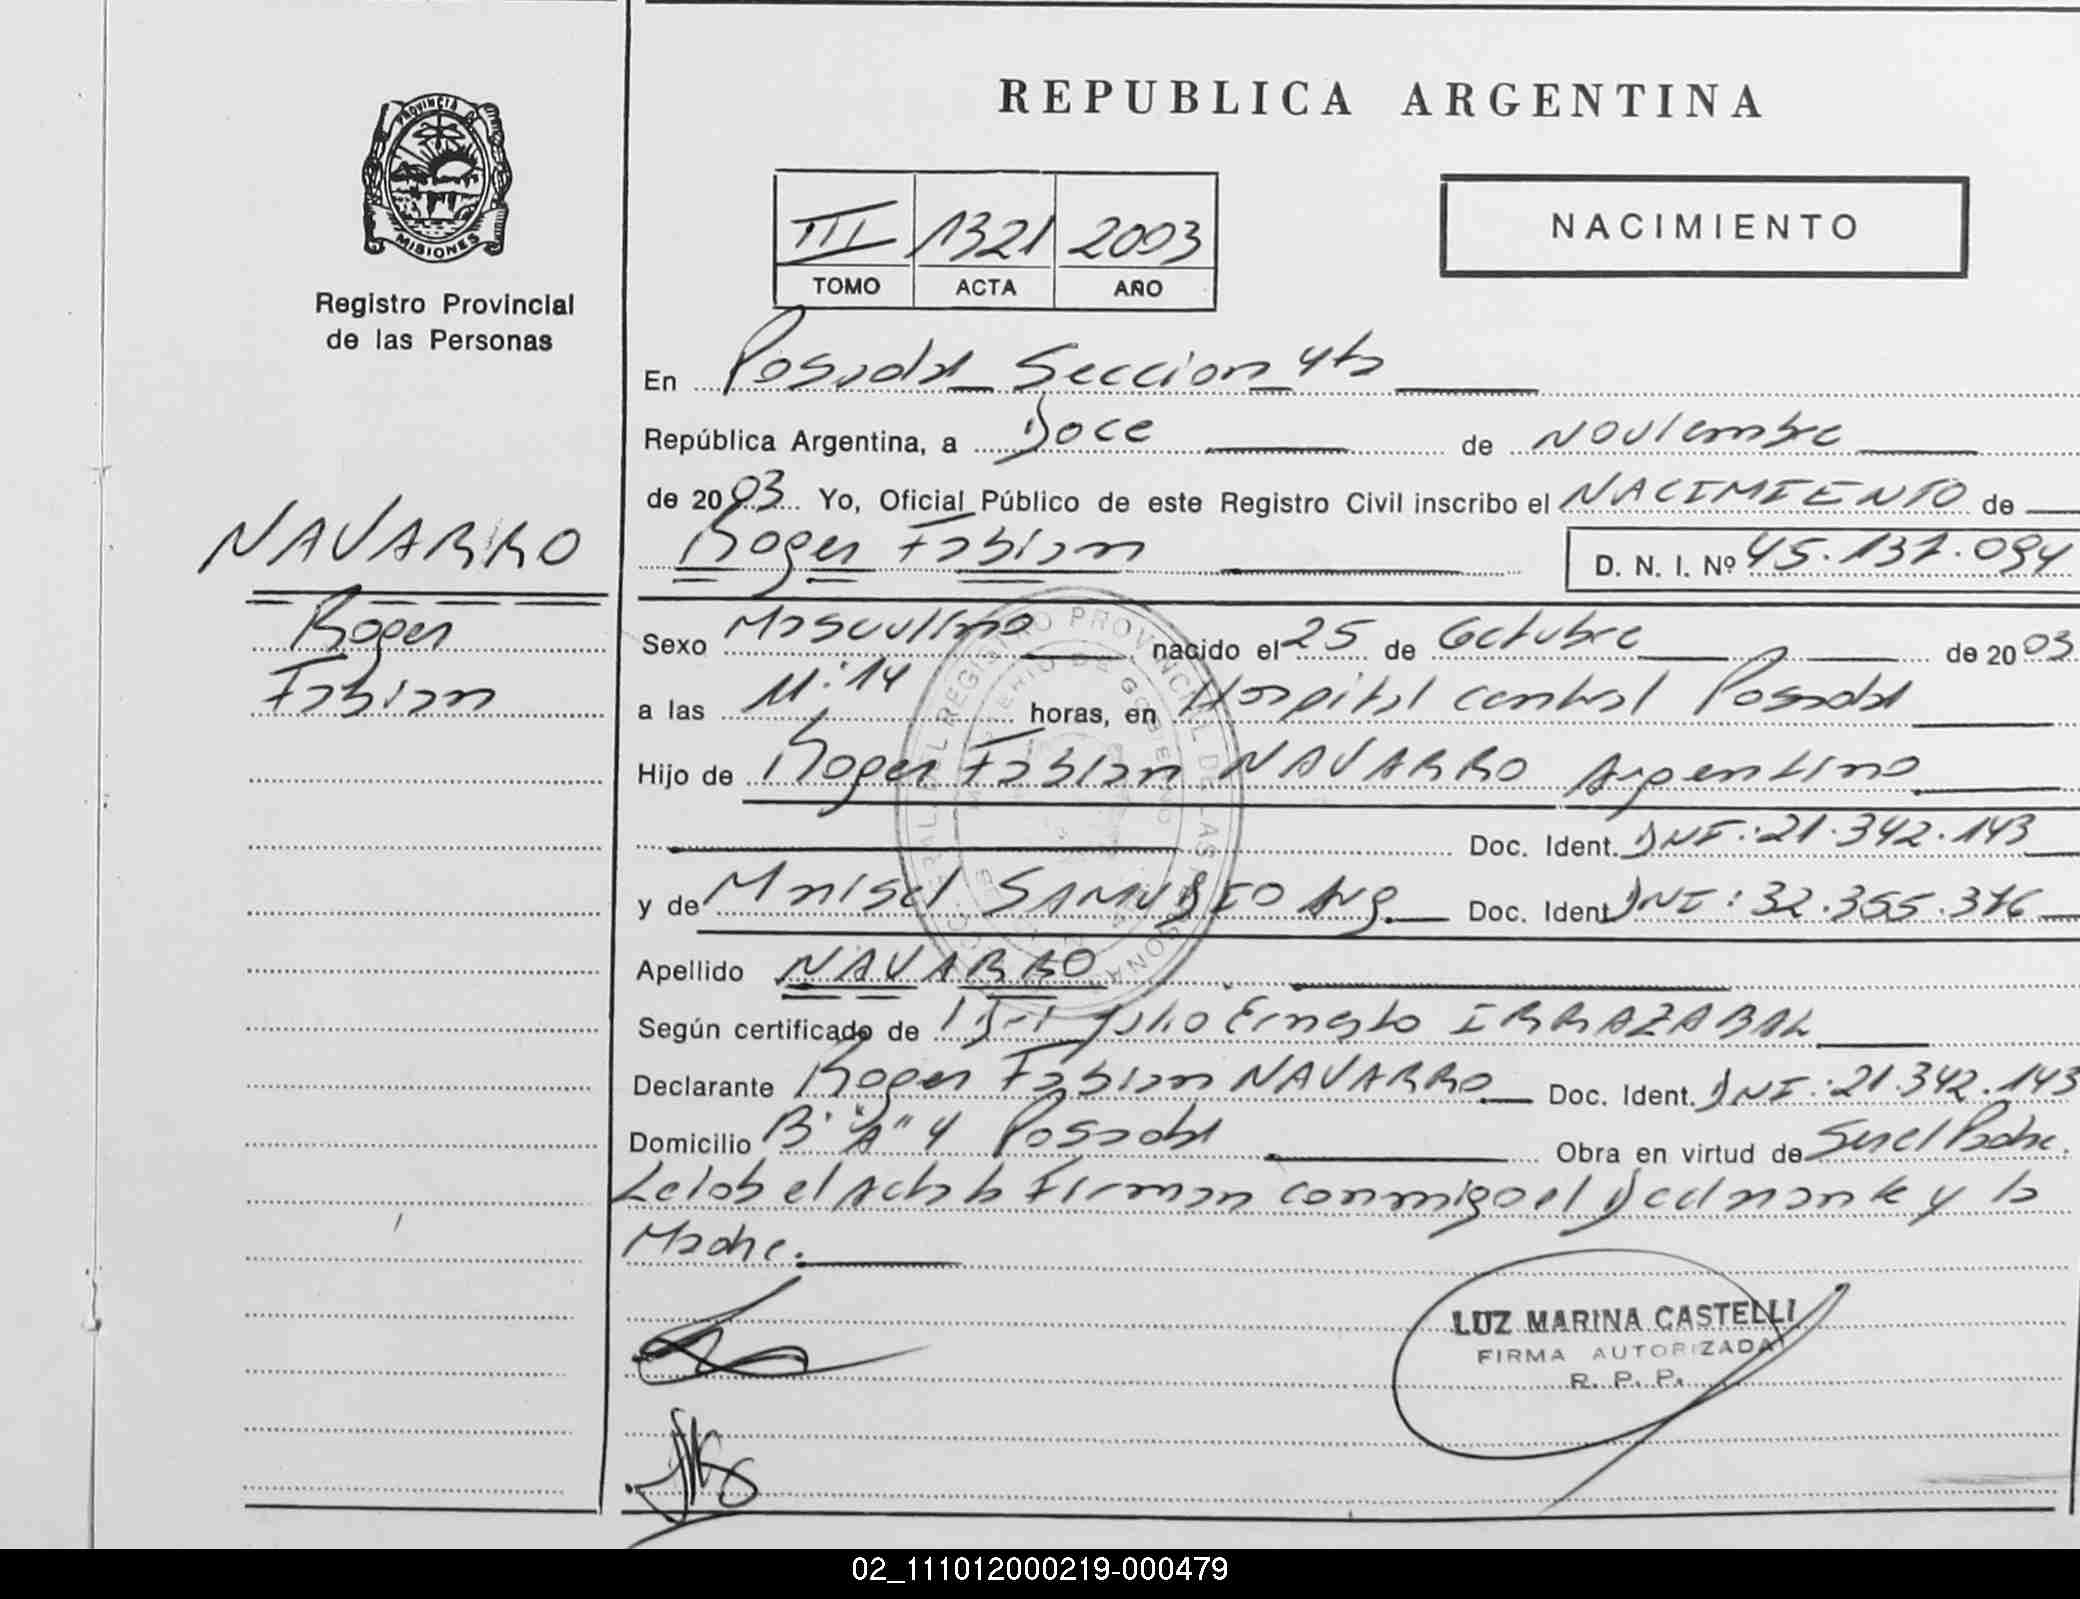 REPUBLICA ARGENTINA
PROVINCIA DE
MISIONES
Registro Provincial
de las Personas
III 1321 2003
TOMO ACTA AÑO
NACIMIENTO
En Posadas Seccion 4ta
República Argentina, a Doce de Noviembre
de 2003 Yo, Oficial Público de este Registro Civil inscribo el NACIMIENTO de
Roger Fabian D. N. I. Nº 45.137.094
NAVARRO
Roger
Fabian
Sexo Masculino nacido el 25 de Octubre de 2003
a las 11:14 horas, en Hospital central Posadas
Hijo de Roger Fabian NAVARRO Argentino
Doc. Ident. DNI: 21.342.143
y de Marisel SAMUDIO Arg. Doc. Ident DNI: 32.355.376
Apellido NAVARRO
Según certificado de Julio Ernesto IRRAZABAL
Declarante Roger Fabian NAVARRO Doc. Ident. DNI: 21.342.143
Domicilio B° "A" 4 Posadas Obra en virtud de Ser el Padre.
Leida el Acta la Firman conmigo el Declarante y la
Madre.
LUZ MARINA CASTELLI
FIRMA AUTORIZADA
R. P. P.
02_111012000219-000479